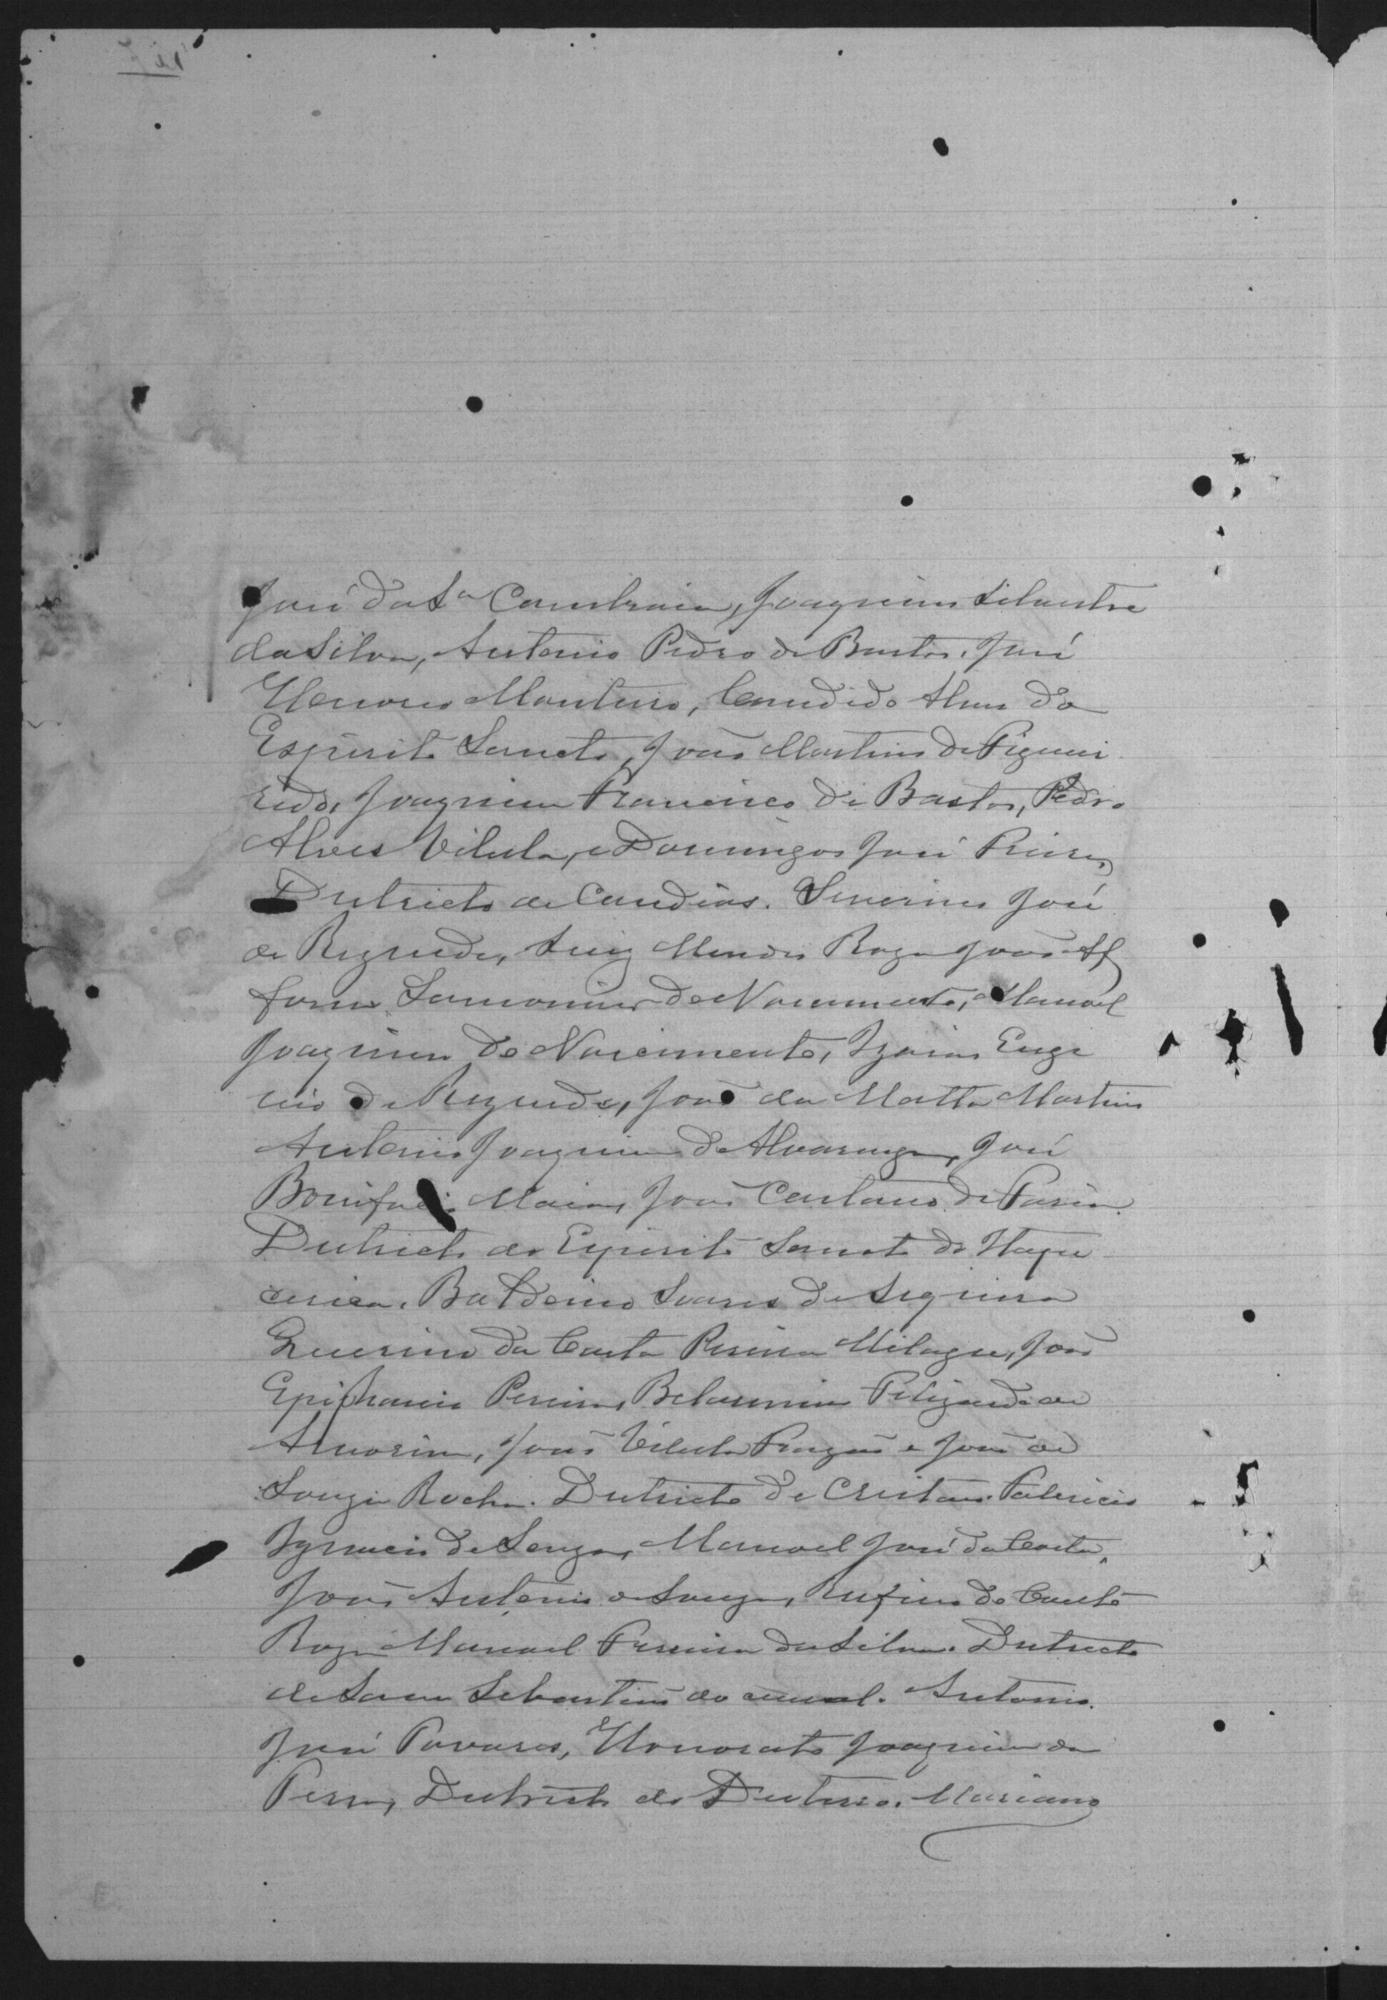 José da Sª Cambraia, Joaquim Silvestre
da Silva, Antonio Pedro de Bastos, José
Honorio Monteiro, Candido Alves do
Espirito Sancto, João Martins de Figuei
redo, Joaquim Francisco de Bastos, Pedro
Alves Vilela, e Domingos José Pires,
Districto de Candêas. Severino José
de Rezende, Luiz Mendes Roza João Af
fonso do Nascimento, Manoel
Joaquim do Nascimento, Izaias Euge
nio de Rezende, João da Matta Martins
Antonio Joaquim de Alvarenga, José
Bonifacio Maia, João Caetano de Faria.
Districto do Espirito Sancto de Itape
cerica. Baldoino Soares de Siqueira
Querino da Costa Pereira Milagre, João
Epiphanio Pereira, Belarmino de
Amorim, João Vilela e João de
Souza Rocha. Districto de Cristaes. Fabricio
Ignacio de Souza, Manoel José da Costa,
João Antonio de Souza, Rufino do Couto
Roza Manoel Ferreira da Silva. Districto
de Sam Sebastião do curral. Antonio
José Tavares, Honorato Joaquim de
Districto do Desterro. Mariano